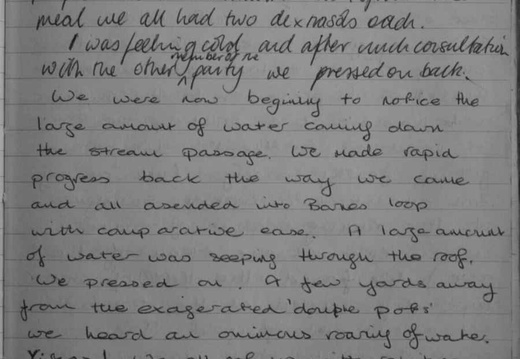 meal we all had two dexnasds each.
I was feeling cold and after much consultation
with the other member of the party we pressed on back.
We were now beginning to notice the
large amount of water coming down
the stream passage. We made rapid
progress back the way we came
and all asended into Banes loop
with comparative ease. A large amount
of water was seeping through the roof.
We pressed on. A few yards away
from the exagerated 'double pots'
we heard an ominous roaring of water.